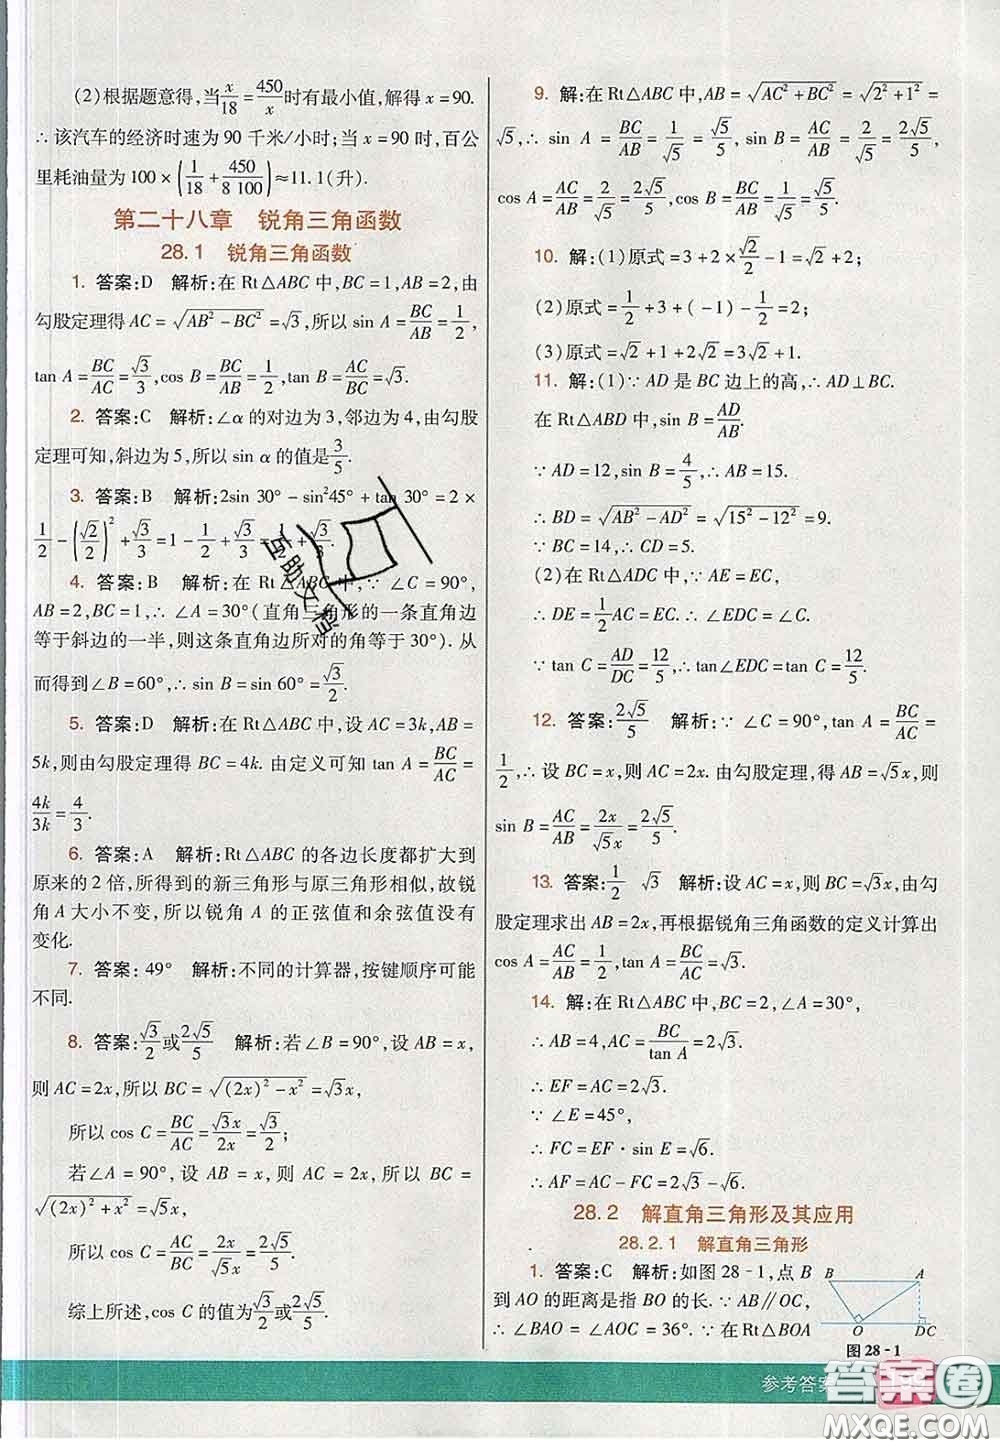 (2)根据题意得,当x/18=450/x时有最小值,解得 x=90.
∴该汽车的经济时速为 90 千米/小时;当 x=90 时,百公
里耗油量为 100×(1/18+450/8 100)≈11.1(升).
第二十八章 锐角三角函数
28.1 锐角三角函数
1. 答案:D 解析:在 Rt△ABC 中,BC=1,AB=2,由
勾股定理得 AC=√(AB²-BC²)=√3,所以 sin A=BC/AB=1/2,
tan A=BC/AC=√3/3,cos B=BC/AB=1/2,tan B=AC/BC=√3.
2. 答案:C 解析:∠α 的对边为 3,邻边为 4,由勾股
定理可知,斜边为 5,所以 sin α 的值是3/5.
3. 答案:B 解析:2sin 30°-sin²45°+tan 30°=2×
1/2-(√2/2)²+√3/3=1-1/2+√3/3=1/2+√3/3.
4. 答案:B 解析:在 Rt△ABC 中,∵∠C=90°,
AB=2,BC=1,∴∠A=30°(直角三角形的一条直角边
等于斜边的一半,则这条直角边所对的角等于 30°).从
而得到∠B=60°,∴sin B=sin 60°=√3/2.
5. 答案:D 解析:在 Rt△ABC 中,设 AC=3k,AB=
5k,则由勾股定理得 BC=4k.由定义可知 tan A=BC/AC=
4k/3k=4/3.
6. 答案:A 解析:Rt△ABC 的各边长度都扩大到
原来的 2 倍,所得到的新三角形与原三角形相似,故锐
角 A 大小不变,所以锐角 A 的正弦值和余弦值没有
变化.
7. 答案:49° 解析:不同的计算器,按键顺序可能
不同.
8. 答案:√3/2或2√5/5 解析:若∠B=90°,设 AB=x,
则 AC=2x,所以 BC=√((2x)²-x²)=√3x,
所以 cos C=BC/AC=√3x/2x=√3/2;
若∠A=90°,设 AB=x,则 AC=2x,所以 BC=
√((2x)²+x²)=√5x,
所以 cos C=AC/BC=2x/√5x=2√5/5.
综上所述,cos C 的值为√3/2或2√5/5.
9. 解:在 Rt△ABC 中,AB=√(AC²+BC²)=√(2²+1²)=
√5,∴sin A=BC/AB=1/√5=√5/5,sin B=AC/AB=2/√5=2√5/5,
cos A=AC/AB=2/√5=2√5/5,cos B=BC/AB=1/√5=√5/5.
10. 解:(1)原式=3+2×√2/2-1=√2+2;
(2)原式=1/2+3+(-1)-1/2=2;
(3)原式=√2+1+2√2=3√2+1.
11. 解:(1)∵AD 是 BC 边上的高,∴AD⊥BC.
在 Rt△ABD 中,sin B=AD/AB.
∵AD=12,sin B=4/5,∴AB=15.
∴BD=√(AB²-AD²)=√(15²-12²)=9.
∵BC=14,∴CD=5.
(2)在 Rt△ADC 中,∵AE=EC,
∴DE=1/2AC=EC.∴∠EDC=∠C.
∵tan C=AD/DC=12/5,∴tan∠EDC=tan C=12/5.
12. 答案:2√5/5 解析:∵∠C=90°,tan A=BC/AC=
1/2,∴设 BC=x,则 AC=2x.由勾股定理,得 AB=√5x,则
sin B=AC/AB=2x/√5x=2√5/5.
13. 答案:1/2 √3 解析:设 AC=x,则 BC=√3x,由勾
股定理求出 AB=2x,再根据锐角三角函数的定义计算出
cos A=AC/AB=1/2,tan A=BC/AC=√3.
14. 解:在 Rt△ABC 中,BC=2,∠A=30°,
∴AB=4,AC=BC/tan A=2√3.
∴EF=AC=2√3.
∵∠E=45°,
∴FC=EF·sin E=√6.
∴AF=AC-FC=2√3-√6.
28.2 解直角三角形及其应用
28.2.1 解直角三角形
1. 答案:C 解析:如图 28-1,点 B
到 AO 的距离是指 BO 的长.∵AB∥OC,
∴∠BAO=∠AOC=36°.∵在 Rt△BOA
B A
O DC
图 28-1
参考答案
答案圈
MXQE.COM
互助文档